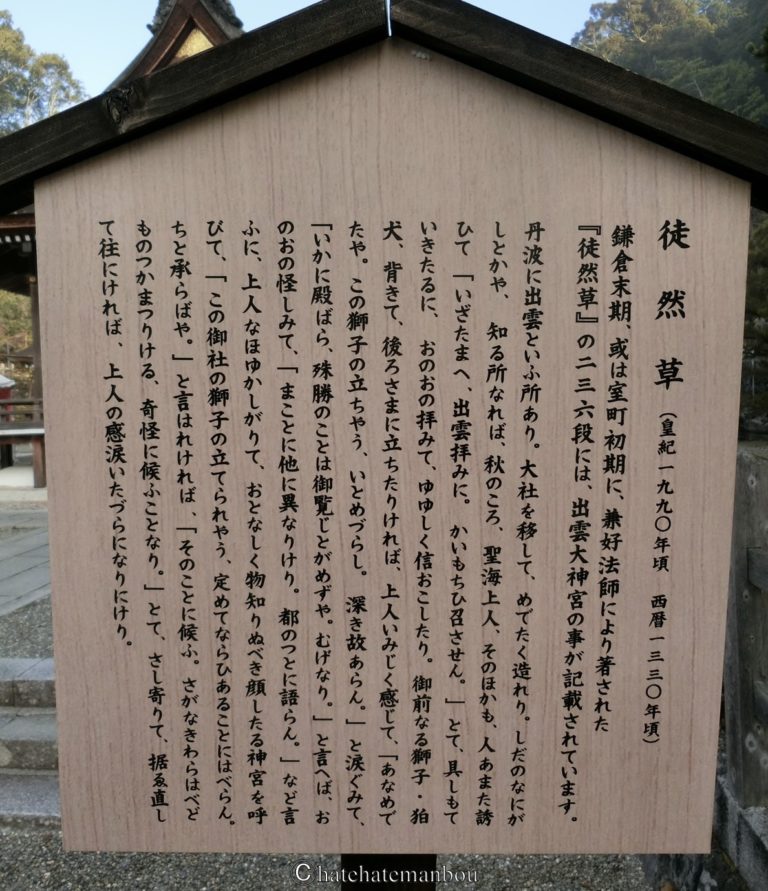 徒然草（皇紀一九九〇年頃　西暦一三三〇年頃）
鎌倉末期、或は室町初期に、兼好法師により著された
『徒然草』の二三六段には、出雲大神宮の事が記載されています。
丹波に出雲といふ所あり。大社を移して、めでたく造れり。しだのなにが
しとかや、知る所なれば、秋のころ、聖海上人、そのほかも、人あまた誘
ひて「いざたまへ、出雲拝みに。かいもちひ召させん。」とて、具しもて
いきたるに、おのおの拝みて、ゆゆしく信おこしたり。御前なる獅子・狛
犬、背きて、後ろさまに立ちたりければ、上人いみじく感じて、「あなめで
たや。この獅子の立ちやう、いとめづらし。深き故あらん。」と涙ぐみて、
「いかに殿ばら、殊勝のことは御覧じとがめずや。むげなり。」と言へば、お
のおの怪しみて、「まことに他に異なりけり。都のつとに語らん。」など言
ふに、上人なほゆかしがりて、おとなしく物知りぬべき顔したる神宮を呼
びて、「この御社の獅子の立てられやう、定めてならひあることにはべらん。
ちと承らばや。」と言はれければ、「そのことに候ふ。さがなきわらはべど
ものつかまつりける、奇怪に候ふことなり。」とて、さし寄りて、据ゑ直し
て往にければ、上人の感涙いたづらになりにけり。
C hatehatemanbou